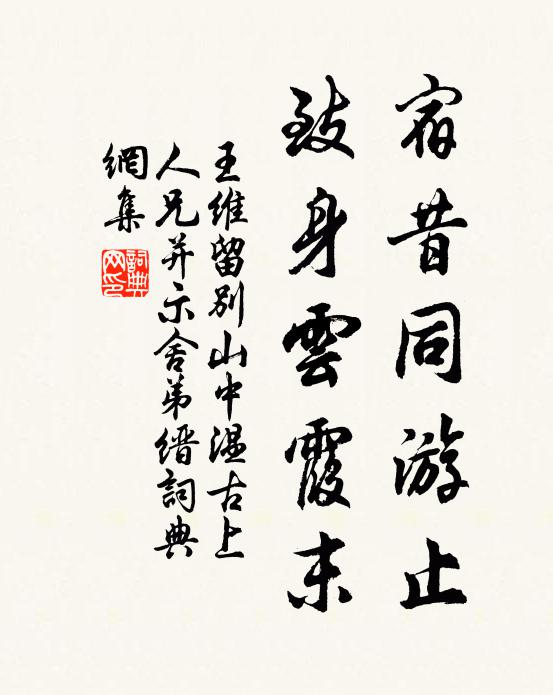 宿昔同游止
致身雲霞末
王維留別山中温古上
人兄并示舍弟縉詞典
網集
詞典網印